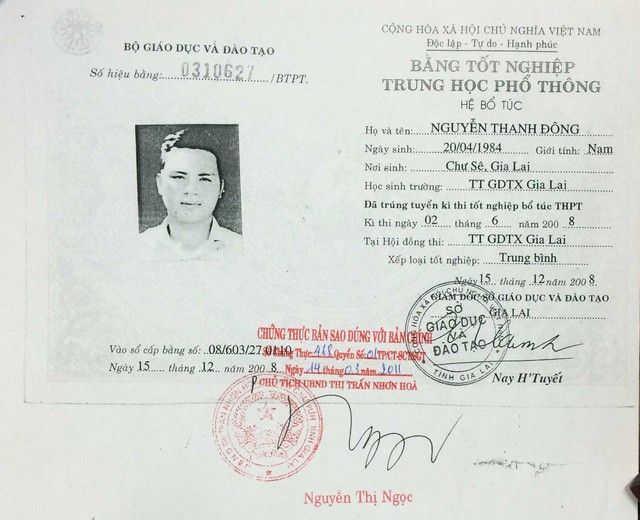 BỘ GIÁO DỤC VÀ ĐÀO TẠO
Số hiệu bằng: 0310627 /BTPT.
CỘNG HÒA XÃ HỘI CHỦ NGHĨA VIỆT NAM
Độc lập - Tự do - Hạnh phúc
BẰNG TỐT NGHIỆP
TRUNG HỌC PHỔ THÔNG
HỆ BỔ TÚC
Họ và tên: NGUYỄN THANH ĐÔNG
Ngày sinh: 20/04/1984 Giới tính: Nam
Nơi sinh: Chư Sê, Gia Lai
Học sinh trường: TT GDTX Gia Lai
Đã trúng tuyển kì thi tốt nghiệp bổ túc THPT
Kì thi ngày 02 tháng 6 năm 200 8
Tại Hội đồng thi: TT GDTX Gia Lai
Xếp loại tốt nghiệp: Trung bình
Ngày 15 tháng 12 năm 200 8
GIÁM ĐỐC SỞ GIÁO DỤC VÀ ĐÀO TẠO
GIA LAI
SỞ
GIÁO DỤC
&
ĐÀO TẠO
TỈNH GIA LAI
Nay H'Tuyết
Vào sổ cấp bằng số: 08/603/27.0110
Ngày 15 tháng 12 năm 200 8
CHỨNG THỰC BẢN SAO ĐÚNG VỚI BẢN CHÍNH
Ngày 14 tháng 03 năm 2011
CHỦ TỊCH UBND THỊ TRẤN NHƠN HOÀ
Nguyễn Thị Ngọc